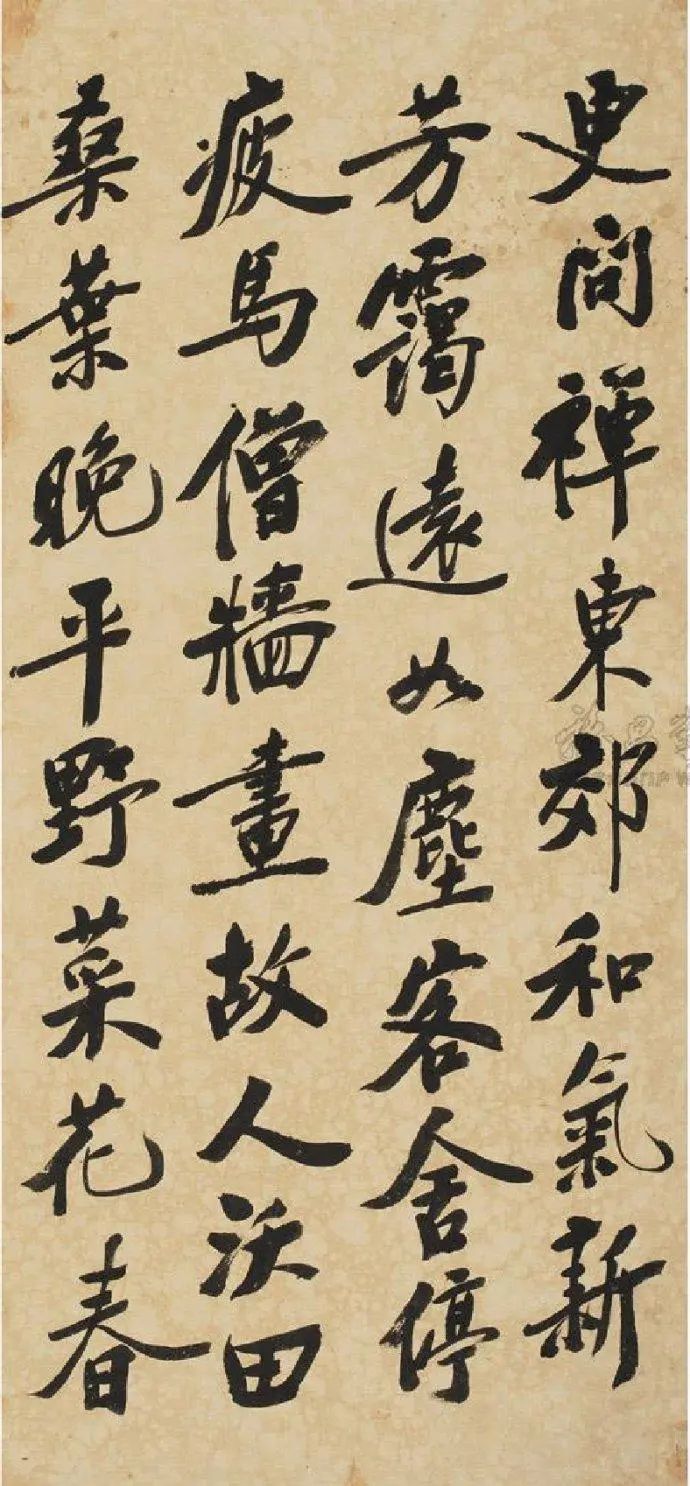 更問禪東郊和氣新
芳靄遠如塵客舍停
疲馬僧牆畫故人沃田
桑葉晚平野菜花春